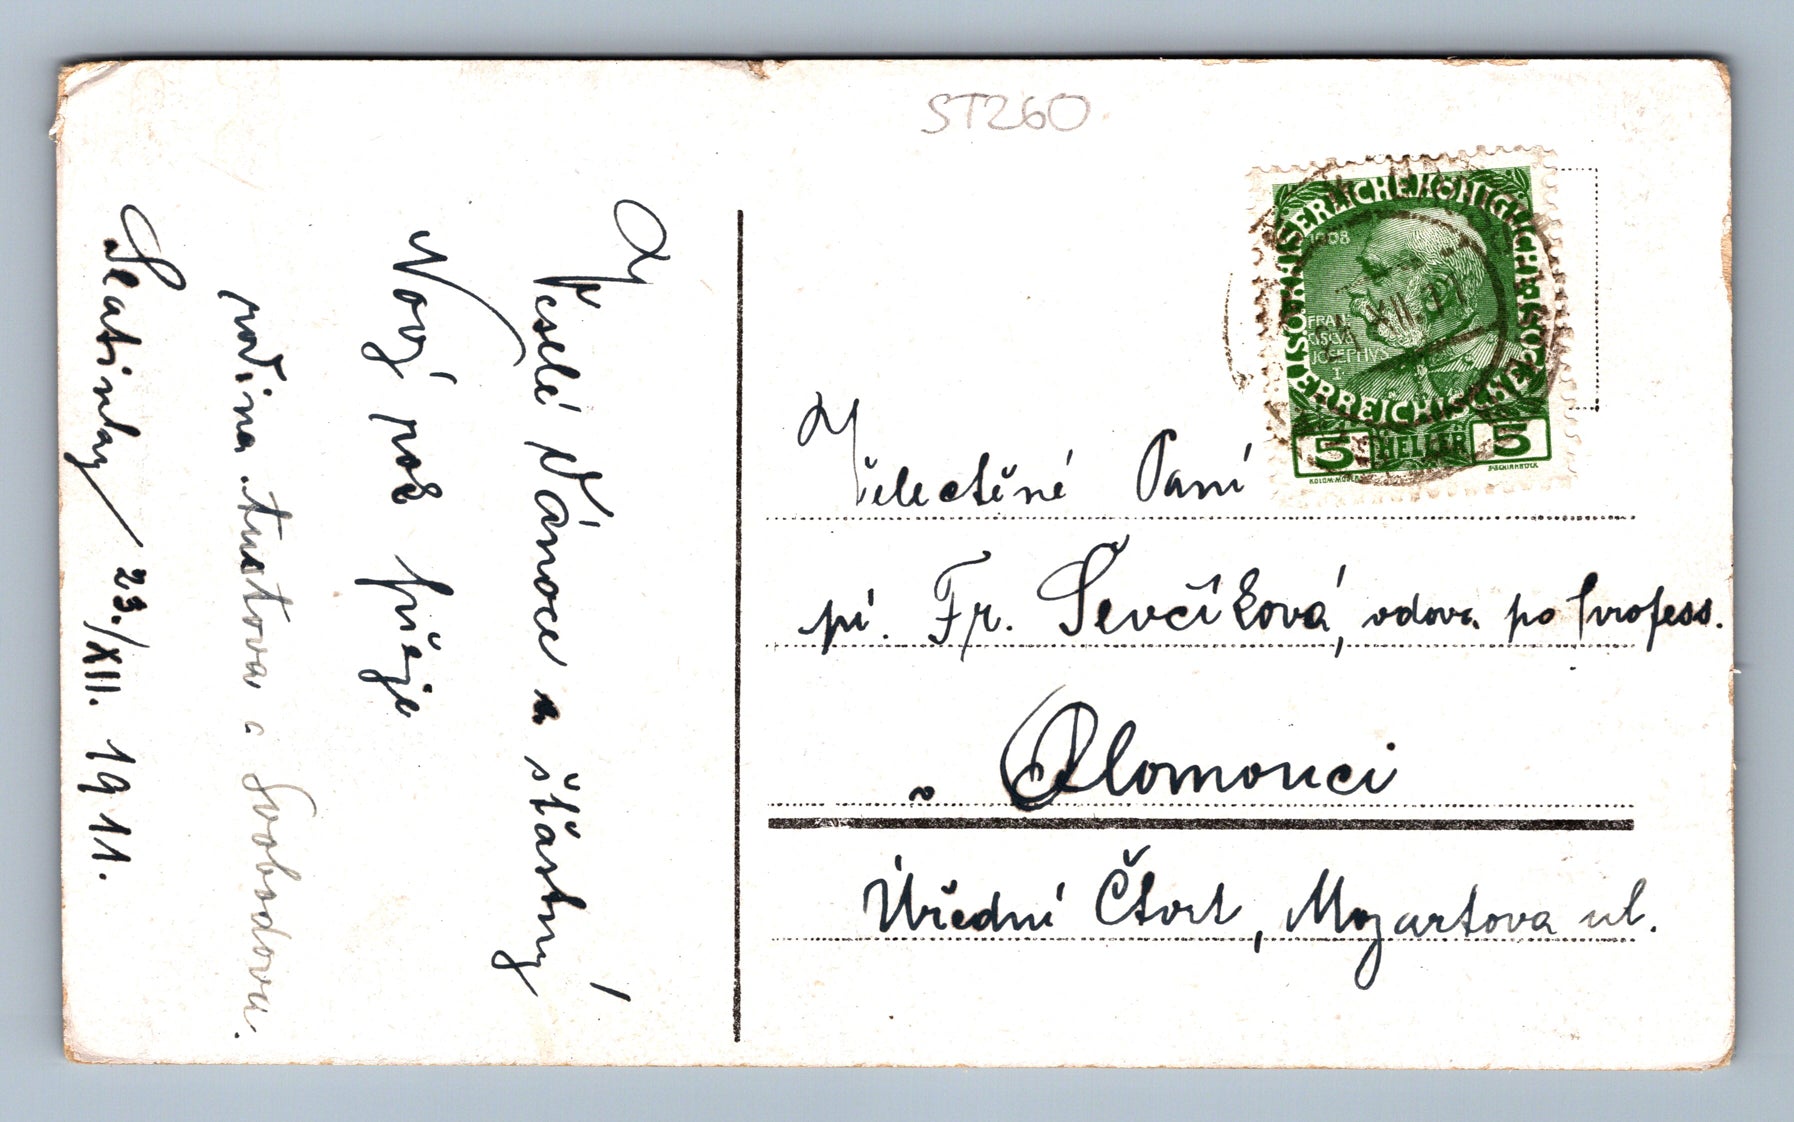 Veselé Vánoce a šťastný
Nový rok přeje
rodina tustova a Svobodova.
Slatinky 23./XII. 1911.
ST260
KAISERLICHE KÖNIGLICHE ÖSTERREICHISCHE POST
1908
FRAN
CISCVS
JOSEPHVS
I.
XII. 11
5 HELLER 5
KOLOM. MOSER
F. SCHIRNBÖCK
Velectěné Paní
pí. Fr. Ševčíková, vdova po profess.
v Olomouci
Úřední Čtvrť, Mozartova ul.